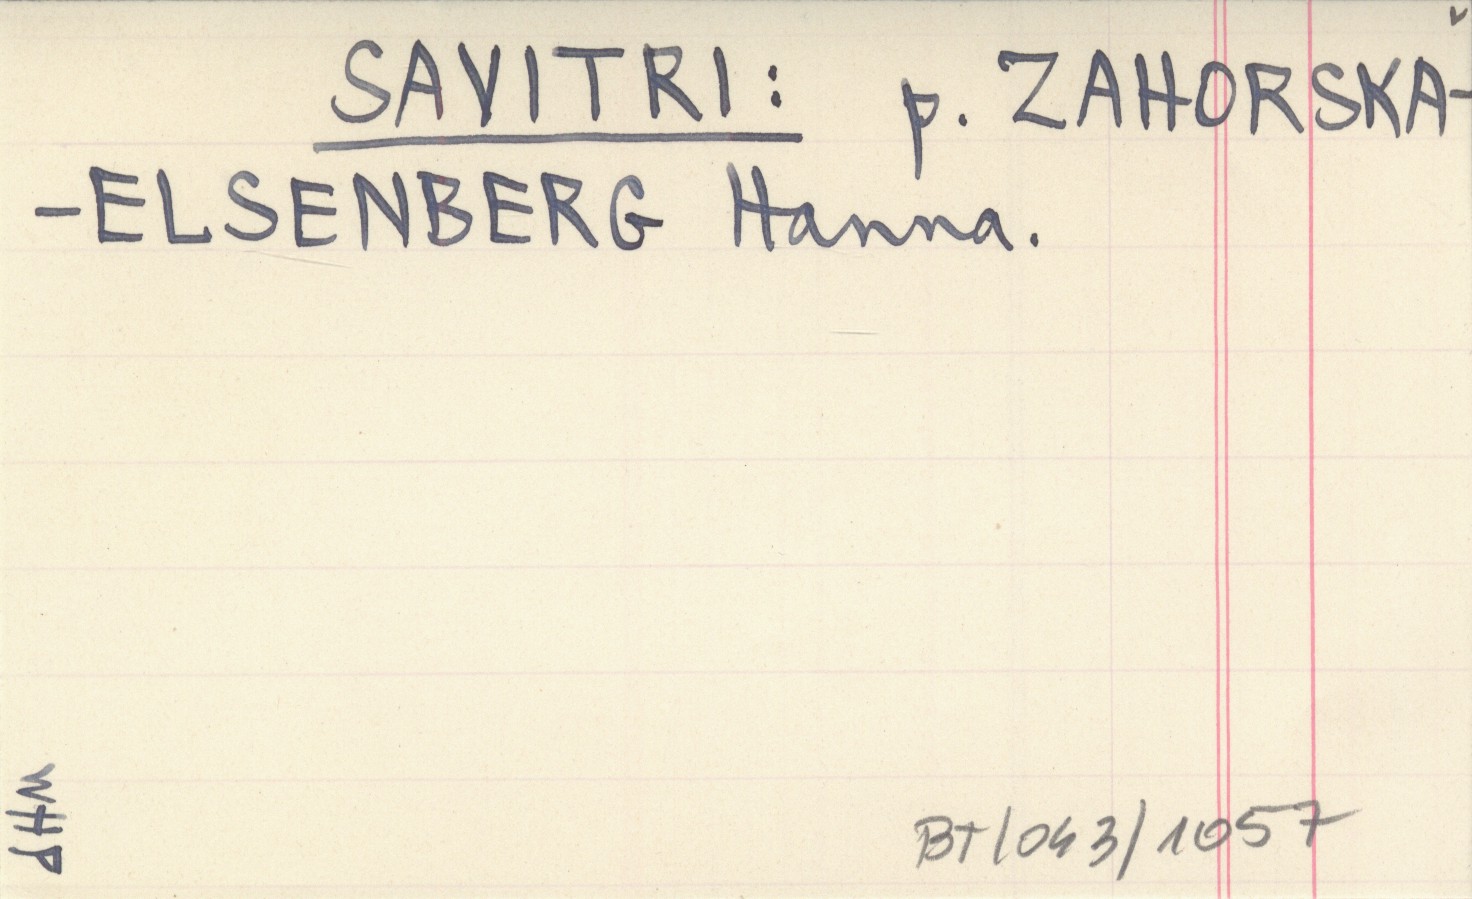 SAVITRI: p. ZAHORSKA-
-ELSENBERG Hanna.
WHP
BT/043/1057